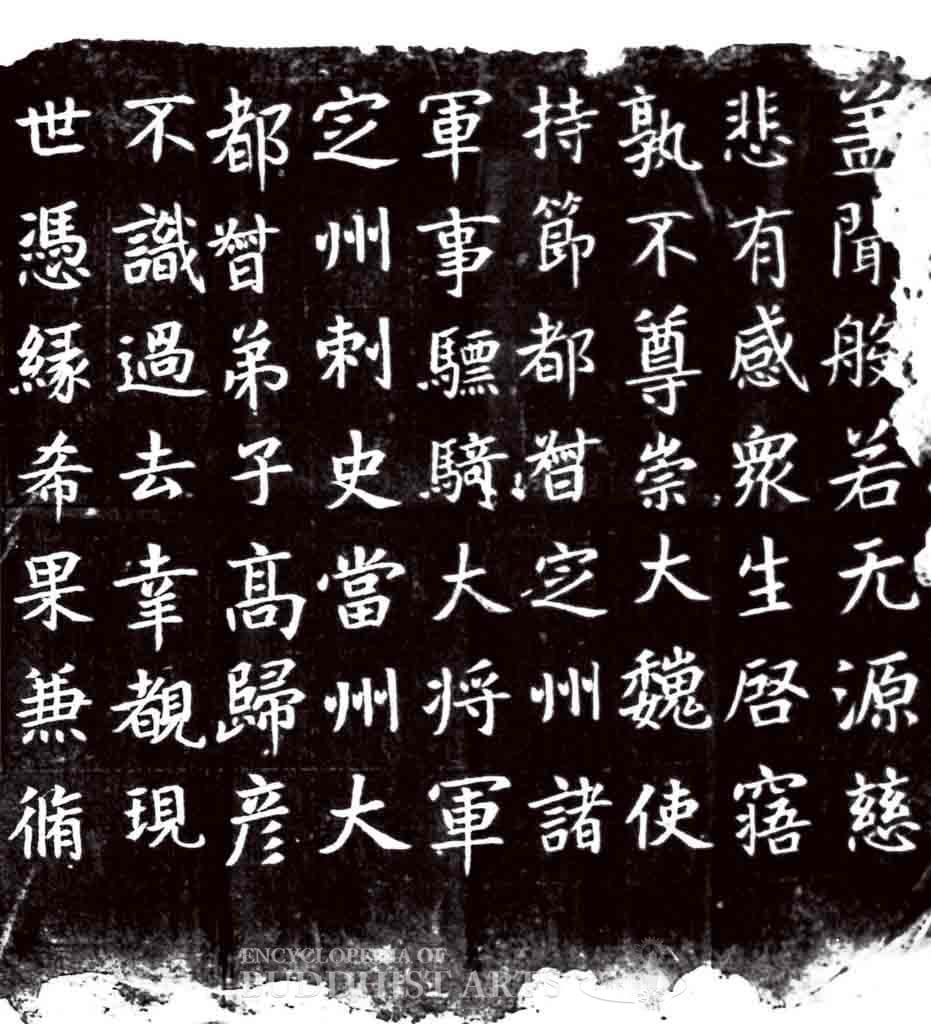 盖聞般若无源慈
悲有感衆生啓𥦮
孰不尊崇大魏使
持節都督定州諸
軍事驃騎大將軍
定州刺史當州大
都督弟子高歸彦
不識過去幸覩現
世憑縁希果兼脩
ENCYCLOPEDIA OF
BUDDHIST ARTS